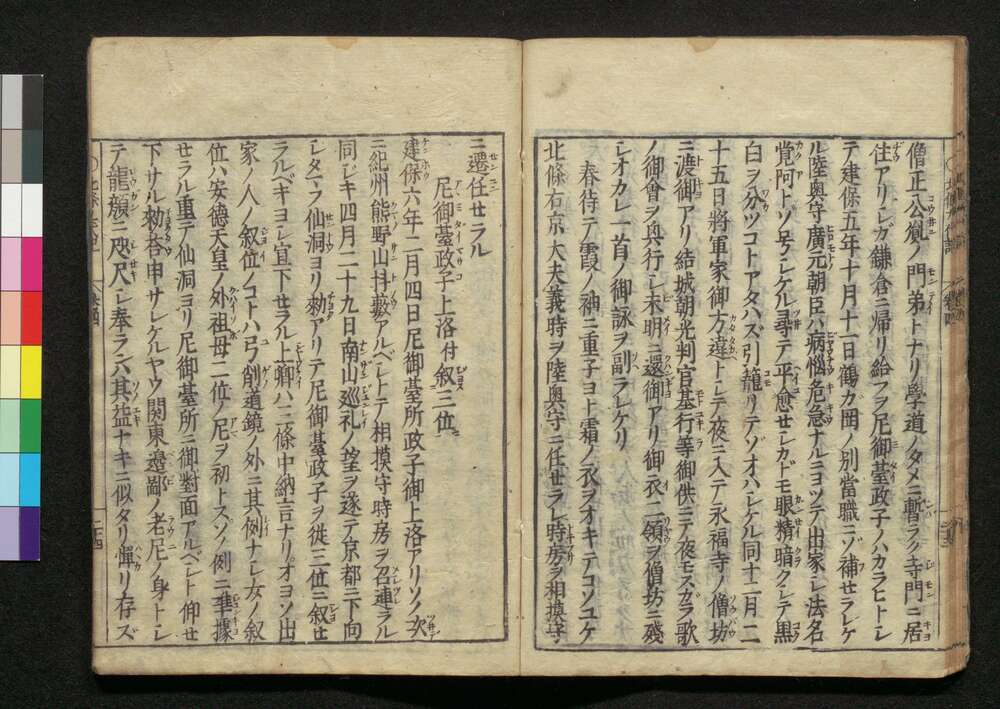 僧正公胤ノ門弟トナリ學道ノタメニ暫ラク寺門ニ居
住アリシガ鎌倉ニ帰リ給フヲ尼御臺政子ノハカラヒトシ
テ建保五年十月十一日鶴ガ岡ノ別當職ニゾ補セラレケ
ル陸奥守廣元朝臣ハ病惱危急ナルニヨツテ出家シ法名
覚阿トゾ号シケル尋テ平愈セシカドモ眼精暗クシテ黒
白ヲ分ツコトアタハズ引籠リテゾオハシケル同十二月二
十五日將軍家御方違トシテ夜ニ入テ永福寺ノ僧坊
ニ渡御アリ結城朝光判官基行等御供ニテ夜モスガラ歌
ノ御會ヲ興行シ未明ニ還御アリ御衣二領ヲ僧坊ニ殘
シオカレ一首ノ御詠ヲ副ラレケリ
春待テ霞ノ袖ニ重子ヨト霜ノ衣ヲオキテコソユケ
北條右京大夫義時ヲ陸奥守ニ任セラレ時房ヲ相摸守
ニ遷任セラル
尼御臺政子上洛付叙三位
建保六年二月四日尼御臺所政子御上洛アリソノ次
ニ紀州熊野山抖藪アルベシトテ相摸守時房ヲ召連ラル
同シキ四月二十九日南山巡礼ノ望ヲ遂テ京都ニ下向
シタマフ仙洞ヨリ勅アリテ尼御臺政子ヲ従三位ニ叙セ
ラルベキヨシ宣下セラル上卿ハ三條中納言ナリオヨソ出
家ノ人ノ叙位ノコトハ弓削道鏡ノ外ニ其例ナシ女ノ叙
位ハ安德天皇ノ外祖母二位ノ尼ヲ初トスソノ例ニ準據
セラル重テ仙洞ヨリ尼御臺所ニ御對面アルベシト仰セ
下サル勅荅申サレケルヤウ関東邊鄙ノ老尼ノ身トシ
テ龍顔ニ咫尺シ奉ラン其益ナキニ似タリ憚リ存ズ